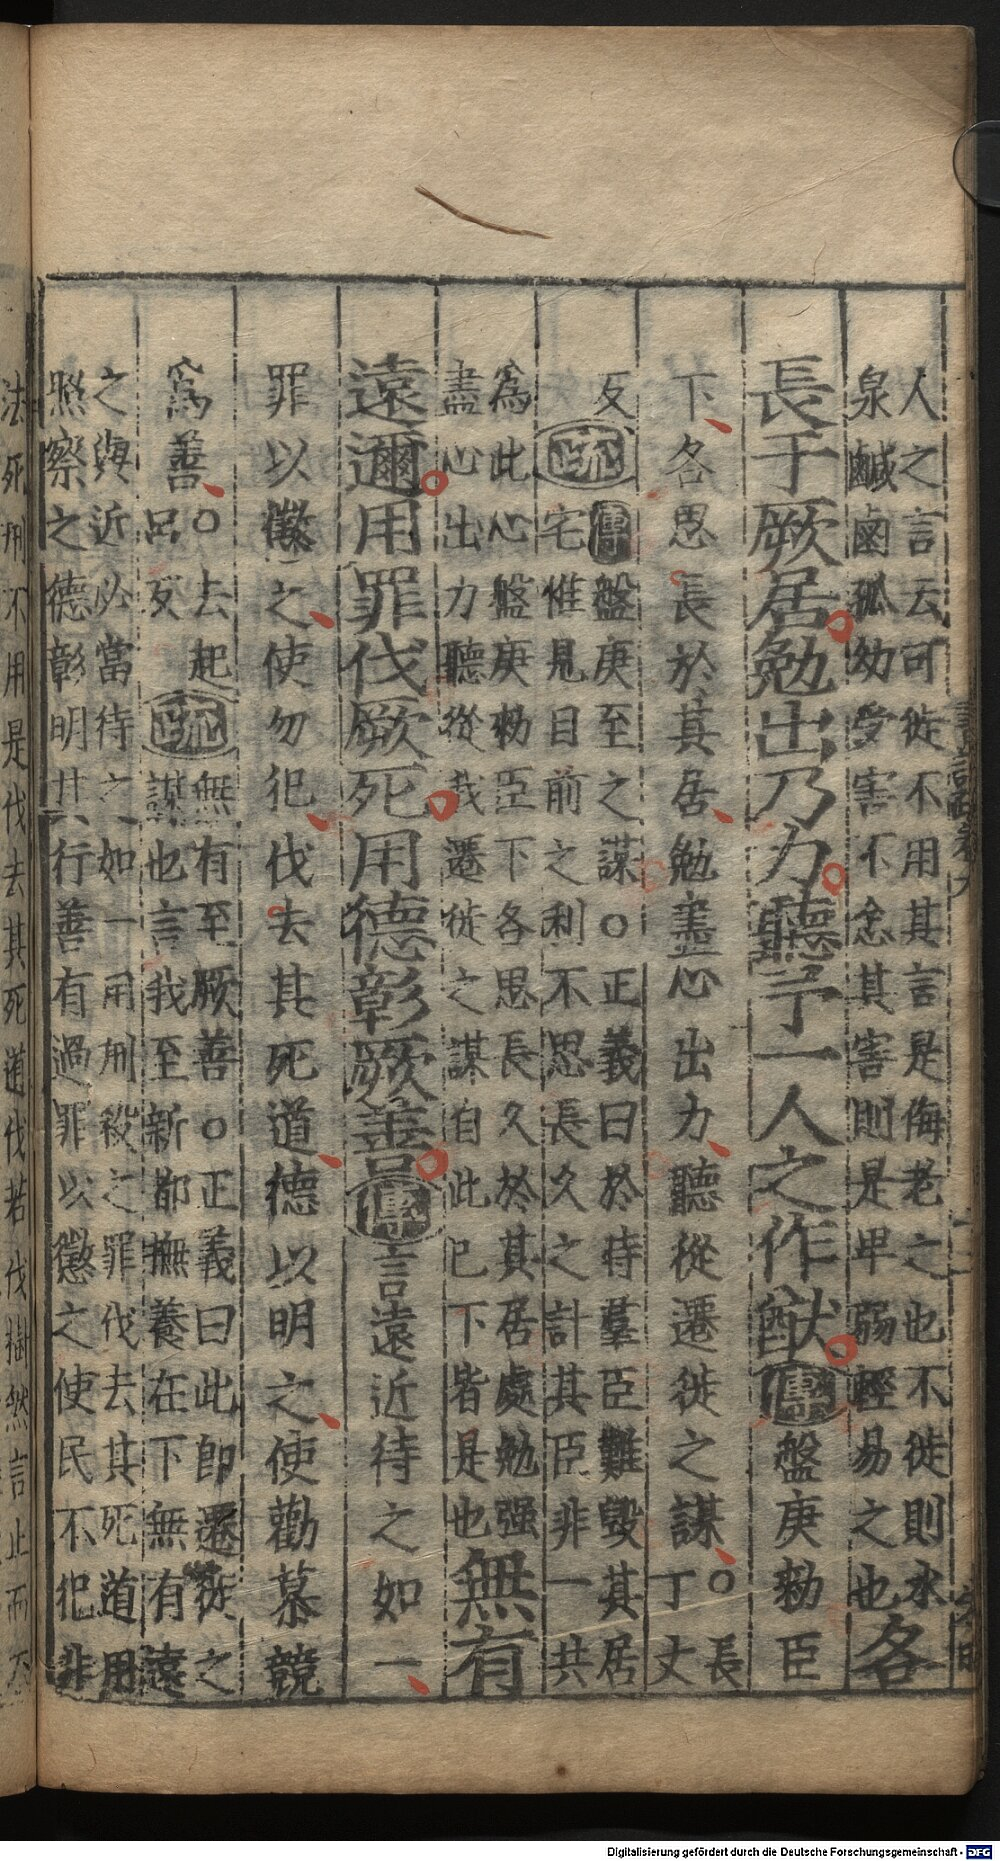 人之言云可徙不用其言是侮老之也不徙則水
泉鹹鹵孤幼受害不念其害則是卑弱輕易之也各
長于厥居勉出乃力聽予一人之作猷傳盤庚勑臣
下各思長於其居勉盡心出力聽從遷徙之謀○長
丁丈
反傳盤庚至之謀○正義曰於時羣臣難毀其居
疏宅惟見目前之利不思長久之計其臣非一共
為此心盤庚勑臣下各思長久於其居處勉强
盡心出力聽從我遷徙之謀自此已下皆是也無有
遠邇用罪伐厥死用德彰厥善傳言遠近待之如一
罪以懲之使勿犯伐去其死道德以明之使勸慕競
為善○去起
呂反疏無有至厥善○正義曰此即遷徙之
謀也言我至新都撫養在下無有遠
之與近必當待之如一用刑殺之罪伐去其死道用
照察之德彰明其行善有過罪以懲之使民不犯非
法死刑不用是伐去其死道伐若伐樹然言止而不
Digitalisierung gefördert durch die Deutsche Forschungsgemeinschaft - DFG